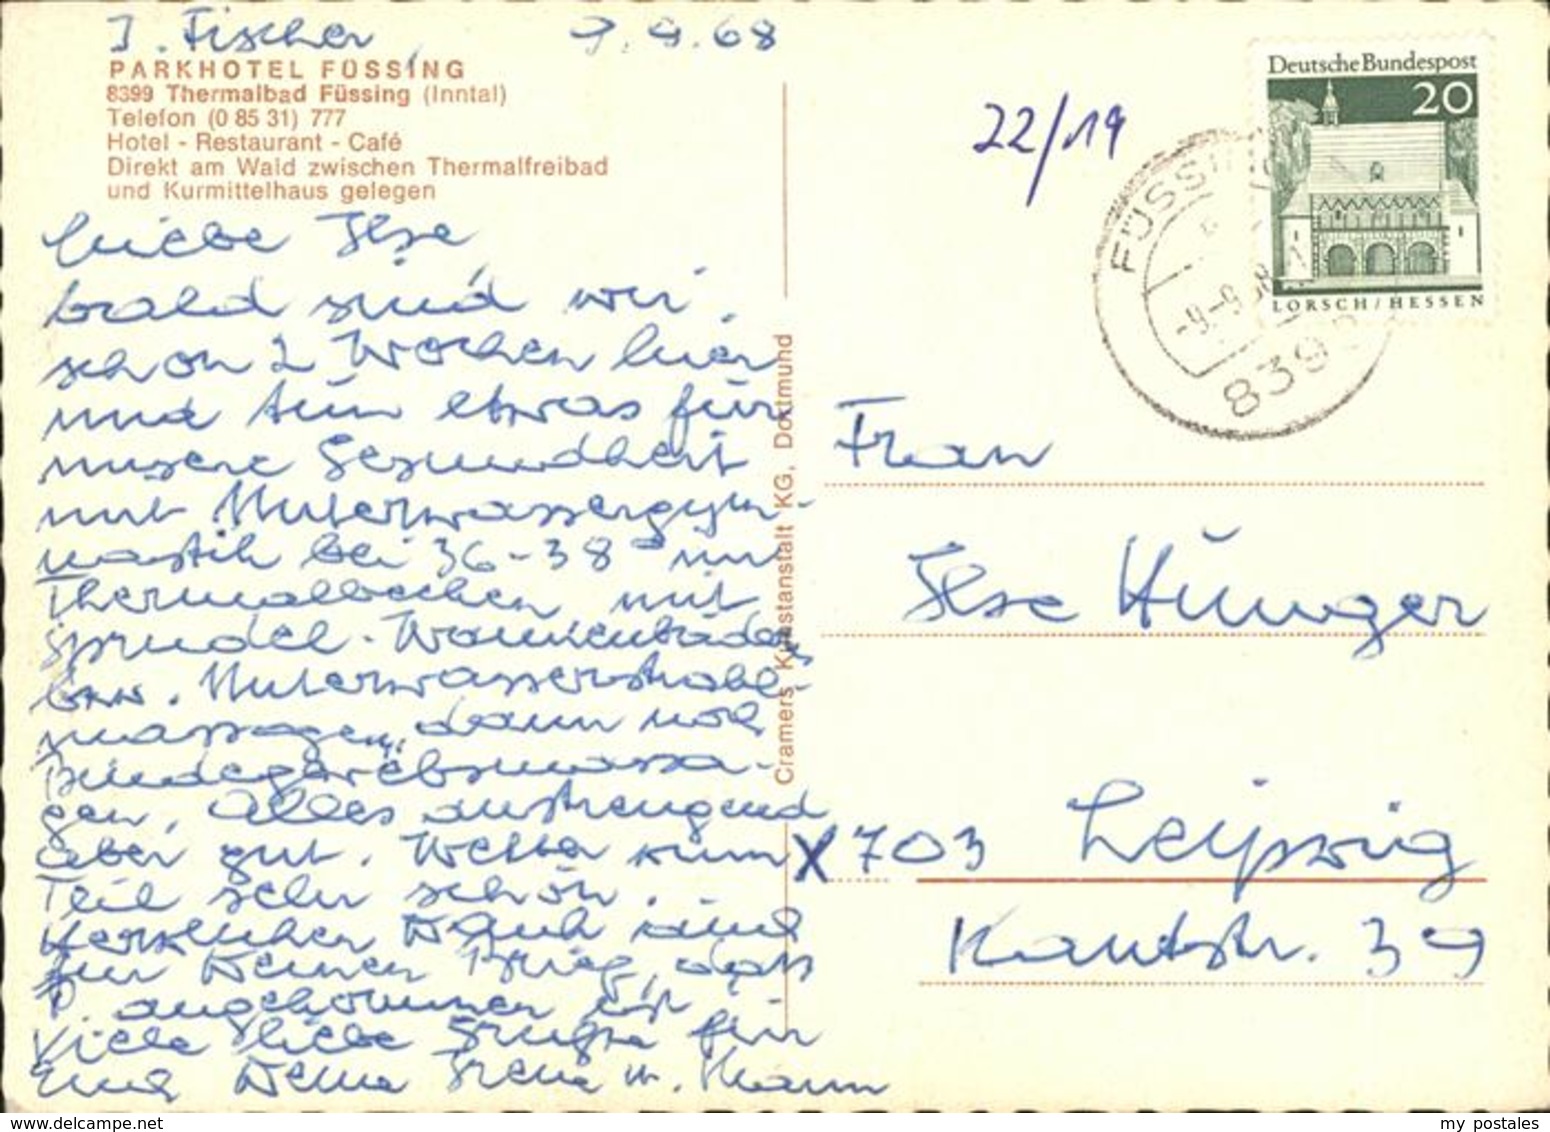 I. Fischer 9.9.68
PARKHOTEL FÜSSING
8399 Thermalbad Füssing (Inntal)
Telefon (0 85 31) 777
Hotel - Restaurant - Café
Direkt am Wald zwischen Thermalfreibad
und Kurmittelhaus gelegen
Liebe Ilse
bald sind wir
schon 2 Wochen hier
und tun etwas für
unsere Gesundheit
mit Unterwassergym-
nastik bei 36-38° im
Thermalbecken mit
Sprudel-Wannenbäder
bzw. Unterwasserstrahl-
massagen, dann noch
Bindegewebsmassa-
gen. Alles anstrengend
aber gut. Wetter zum
Teil sehr schön.
Herzlichen Dank
für Deinen Brief, dass
P. angekommen ist
Viele liebe Grüße für
Euch Deine Irene u. Mann
Cramers Kunstanstalt KG, Dortmund
22/19
Deutsche Bundespost
20
LORSCH/HESSEN
FÜSSING
-9.-9.68
839
Frau
Ilse Hünger
X 703 Leipzig
Kantstr. 39
my postales